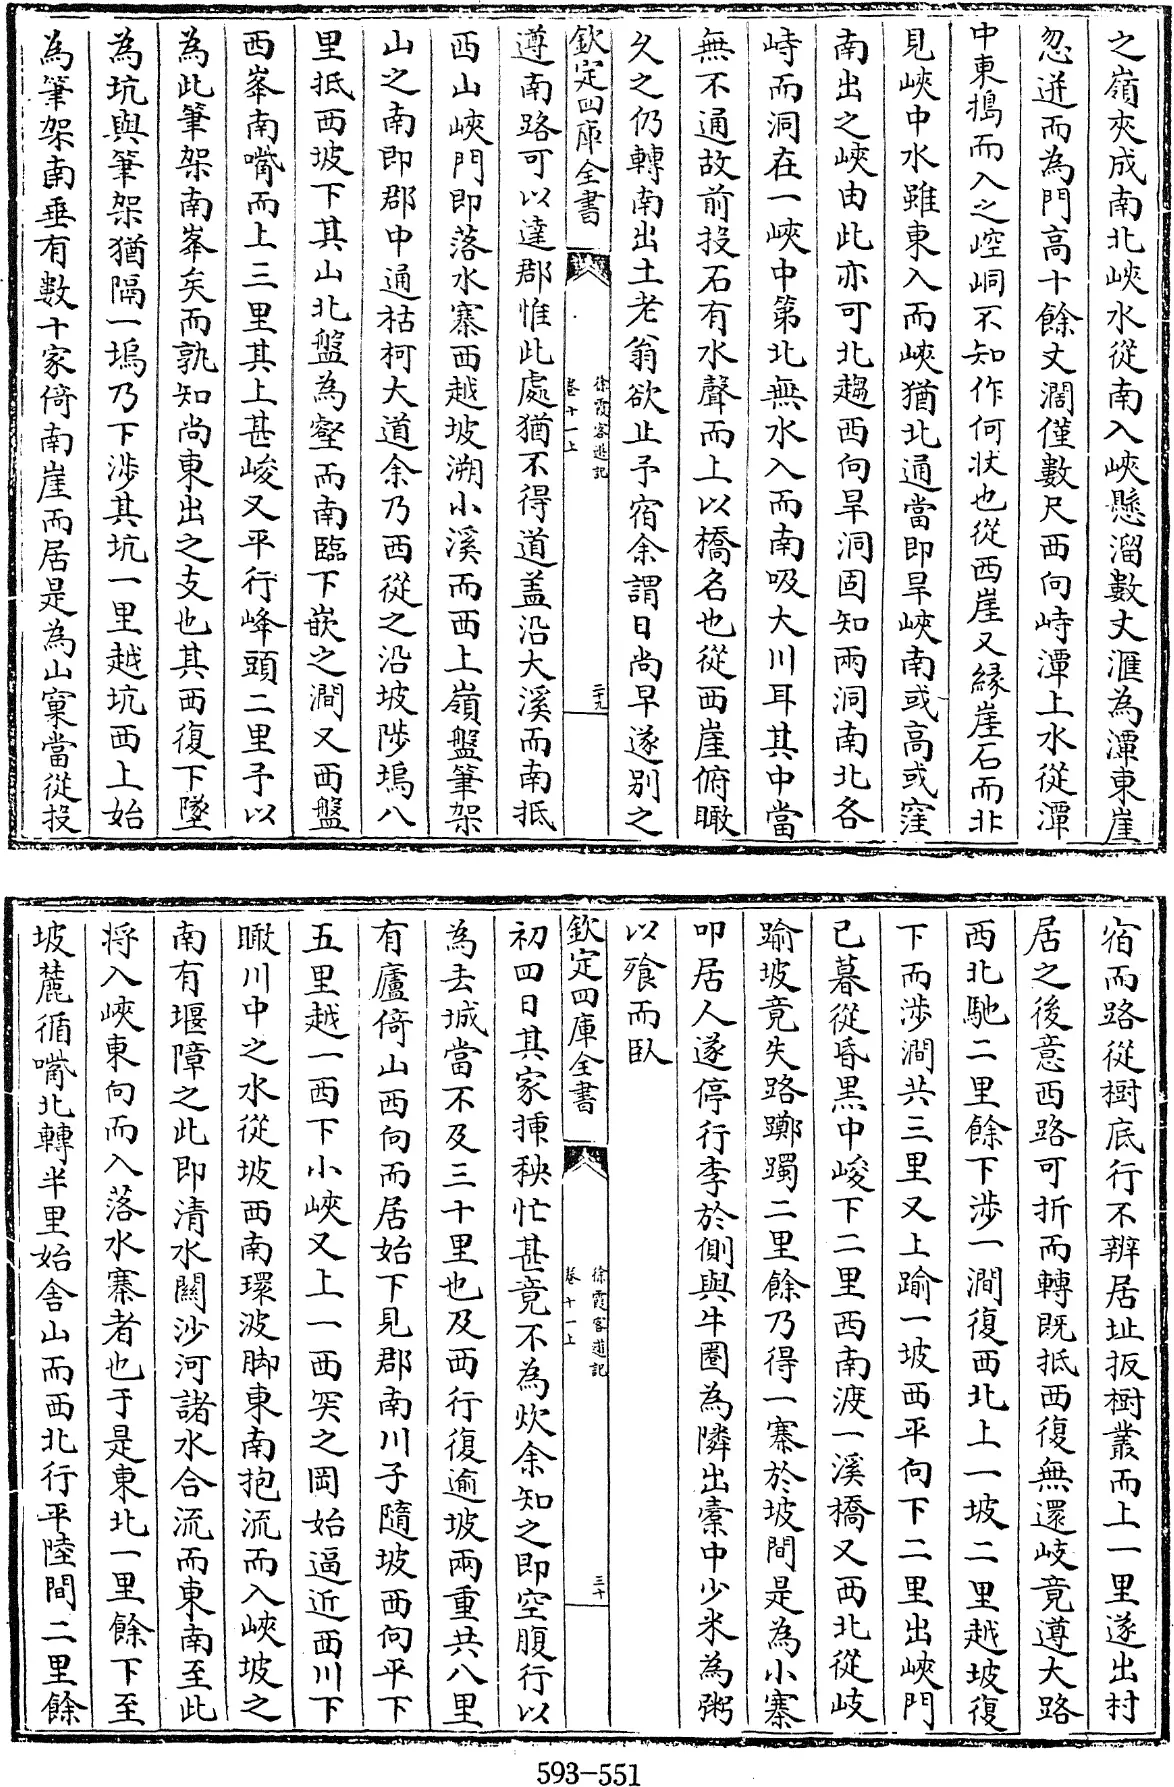 之嶺夾成南北峽水從南入峽懸溜數丈滙為潭東崖
忽迸而為門高十餘丈濶僅數尺西向峙潭上水從潭
中東搗而入之崆峒不知作何狀也從西崖又緣崖石而北
見峽中水雖東入而峽猶北通當即旱峽南或高或窪
南出之峽由此亦可北趨西向旱洞固知兩洞南北各
峙而洞在一峽中第北無水入而南吸大川耳其中當
無不通故前投石有水聲而上以橋名也從西崖俯瞰
久之仍轉南出土老翁欲止予宿余謂日尚早遂別之
欽定四庫全書
徐霞客遊記
卷十一上
二十九
遵南路可以達郡惟此處猶不得道盖沿大溪而南抵
西山峽門即落水寨西越坡溯小溪而西上嶺盤筆架
山之南即郡中通枯柯大道余乃西從之沿坡陟塢八
里抵西坡下其山北盤為壑而南臨下嵌之澗又西盤
西峯南嘴而上三里其上甚峻又平行峰頭二里予以
為此筆架南峯矣而孰知尚東出之支也其西復下墜
為坑與筆架猶隔一塢乃下涉其坑一里越坑西上始
為筆架南垂有數十家倚南崖而居是為山窠當從投
宿而路從樹底行不辨居址扳樹叢而上一里遂出村
居之後意西路可折而轉既抵西復無還岐竟遵大路
西北馳二里餘下涉一澗復西北上一坡二里越坡復
下而涉澗共三里又上踰一坡西平向下二里出峽門
已暮從昏黑中峻下二里西南渡一溪橋又西北從岐
踰坡竟失路躑躅二里餘乃得一寨於坡間是為小寨
叩居人遂停行李於側與牛圈為隣出橐中少米為粥
以飧而臥
欽定四庫全書
徐霞客遊記
卷十一上
三十
初四日其家揷秧忙甚竟不為炊余知之即空腹行以
為去城當不及三十里也及西行復逾坡兩重共八里
有廬倚山西向而居始下見郡南川子隨坡西向平下
五里越一西下小峽又上一西突之岡始逼近西川下
瞰川中之水從坡西南環波脚東南抱流而入峽坡之
南有堰障之此即清水關沙河諸水合流而東南至此
將入峽東向而入落水寨者也于是東北一里餘下至
坡麓循嘴北轉半里始舍山而西北行平陸間二里餘
593-551